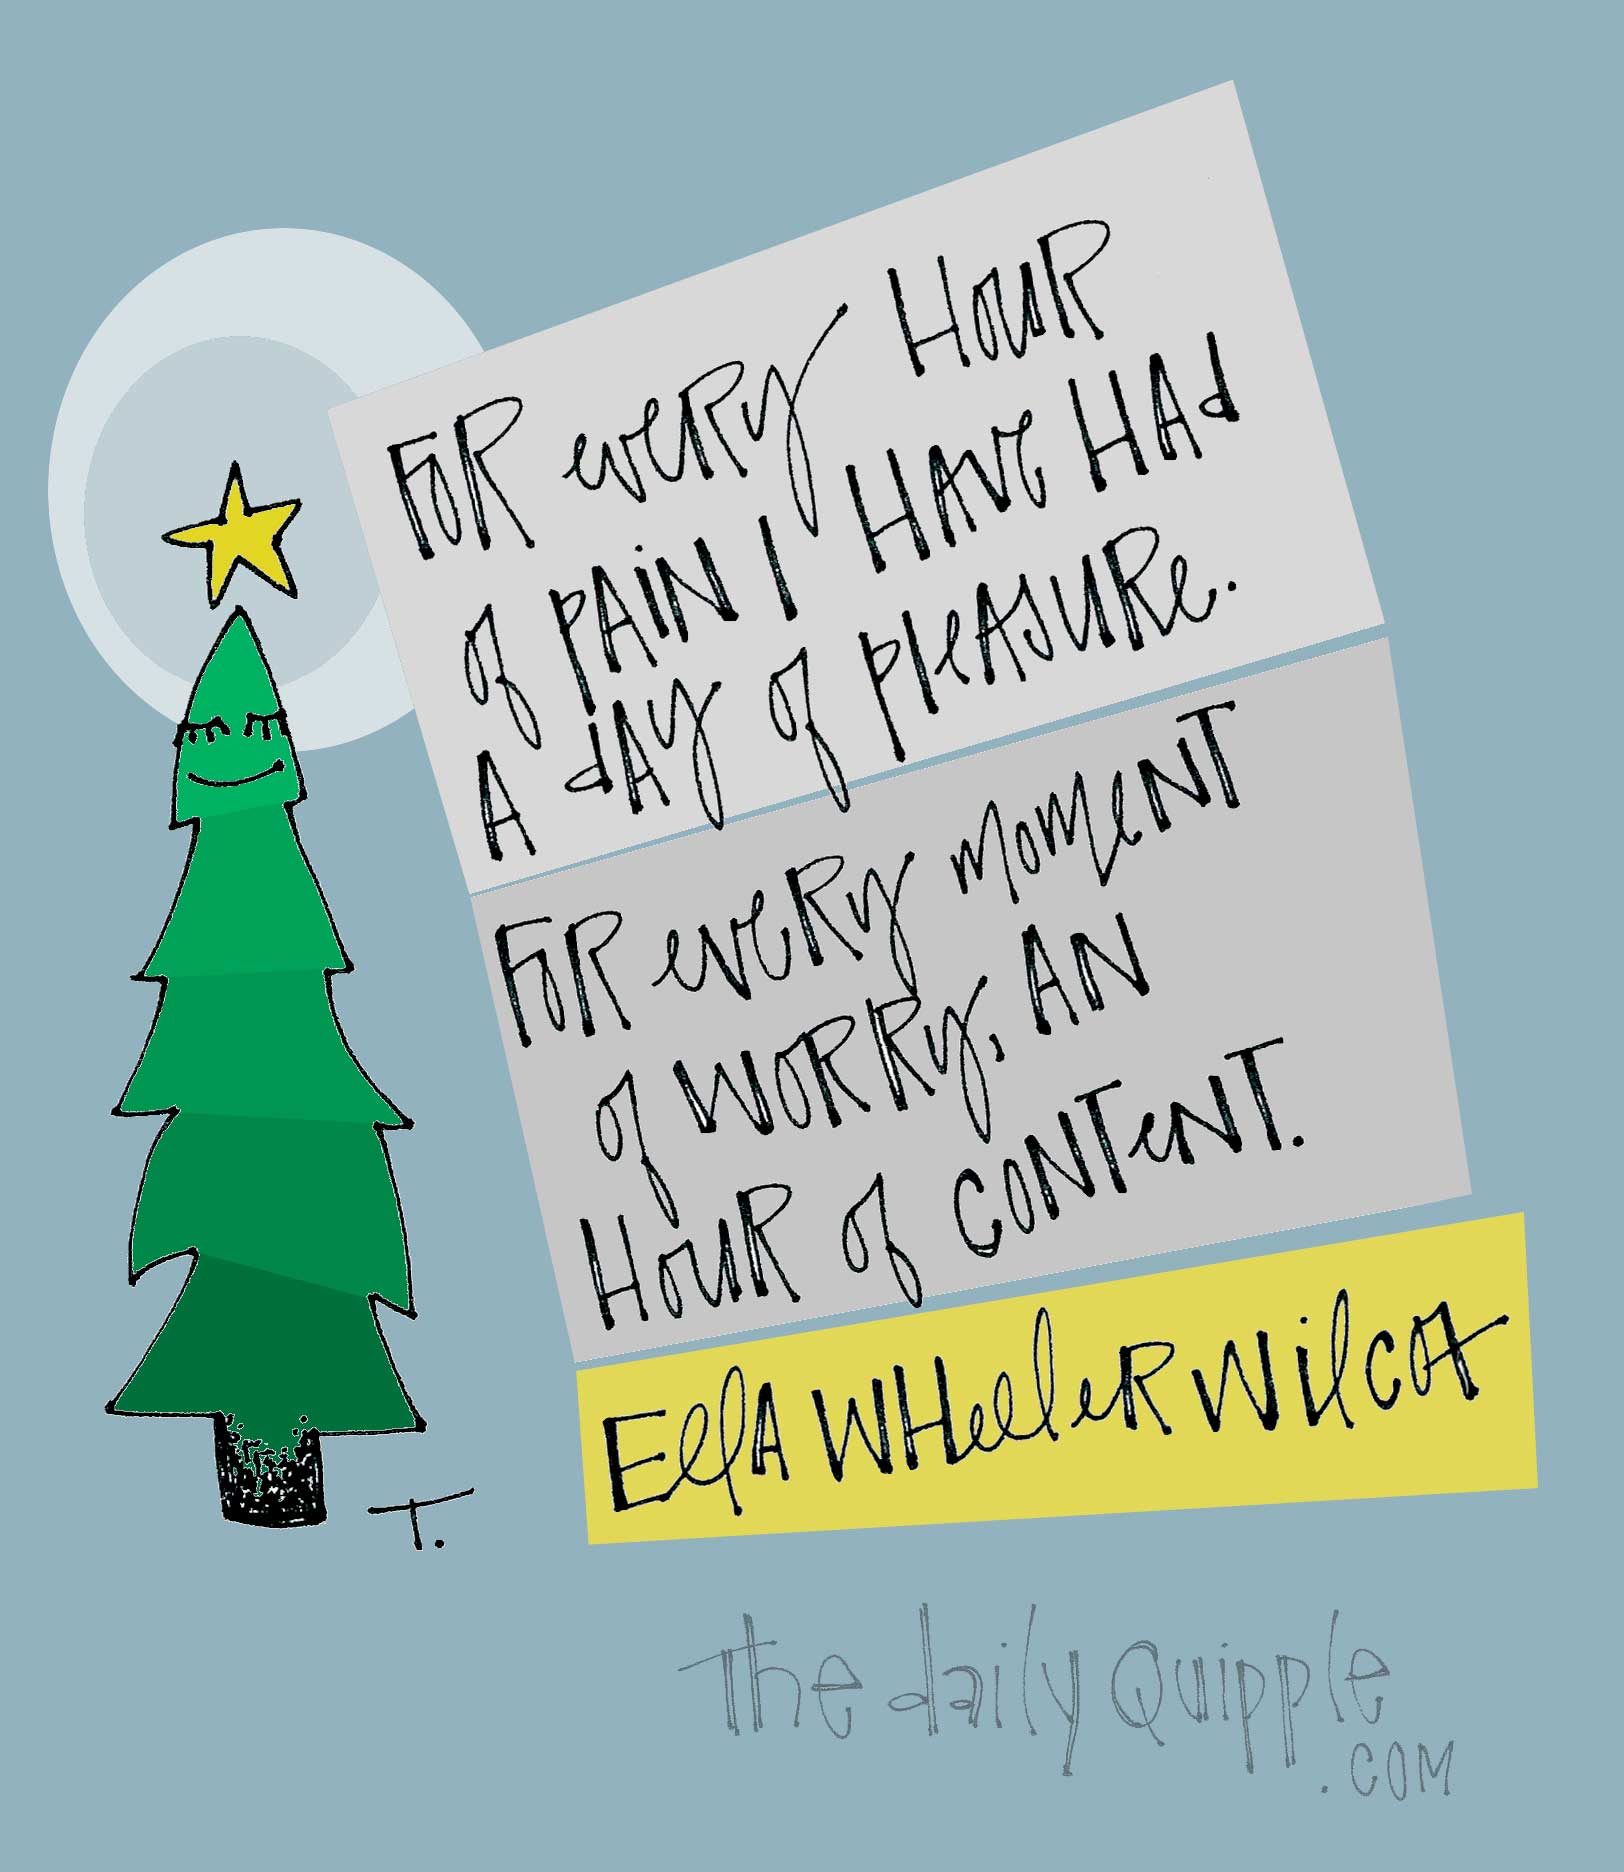 FOR every HOUR
of PAiN I HAVE HAd
A dAy of pleASURe.
FOR every moment
of WORRy, AN
HOUR of CONTeNT.
EllA WHeeleR WilcOx
T.
The daily Quipple
.COM